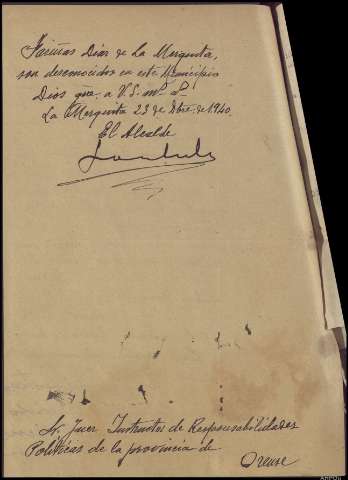 Fariñas Dias de La Mezquita,
son desconocidos en este Municipio
Dios gue. a V.S. ms. as.
La Mezquita 23 de Dbre. de 1940.
El Alcalde
Sr. Juez Instructor de Responsabilidades
Politicas de la provincia de
Orense